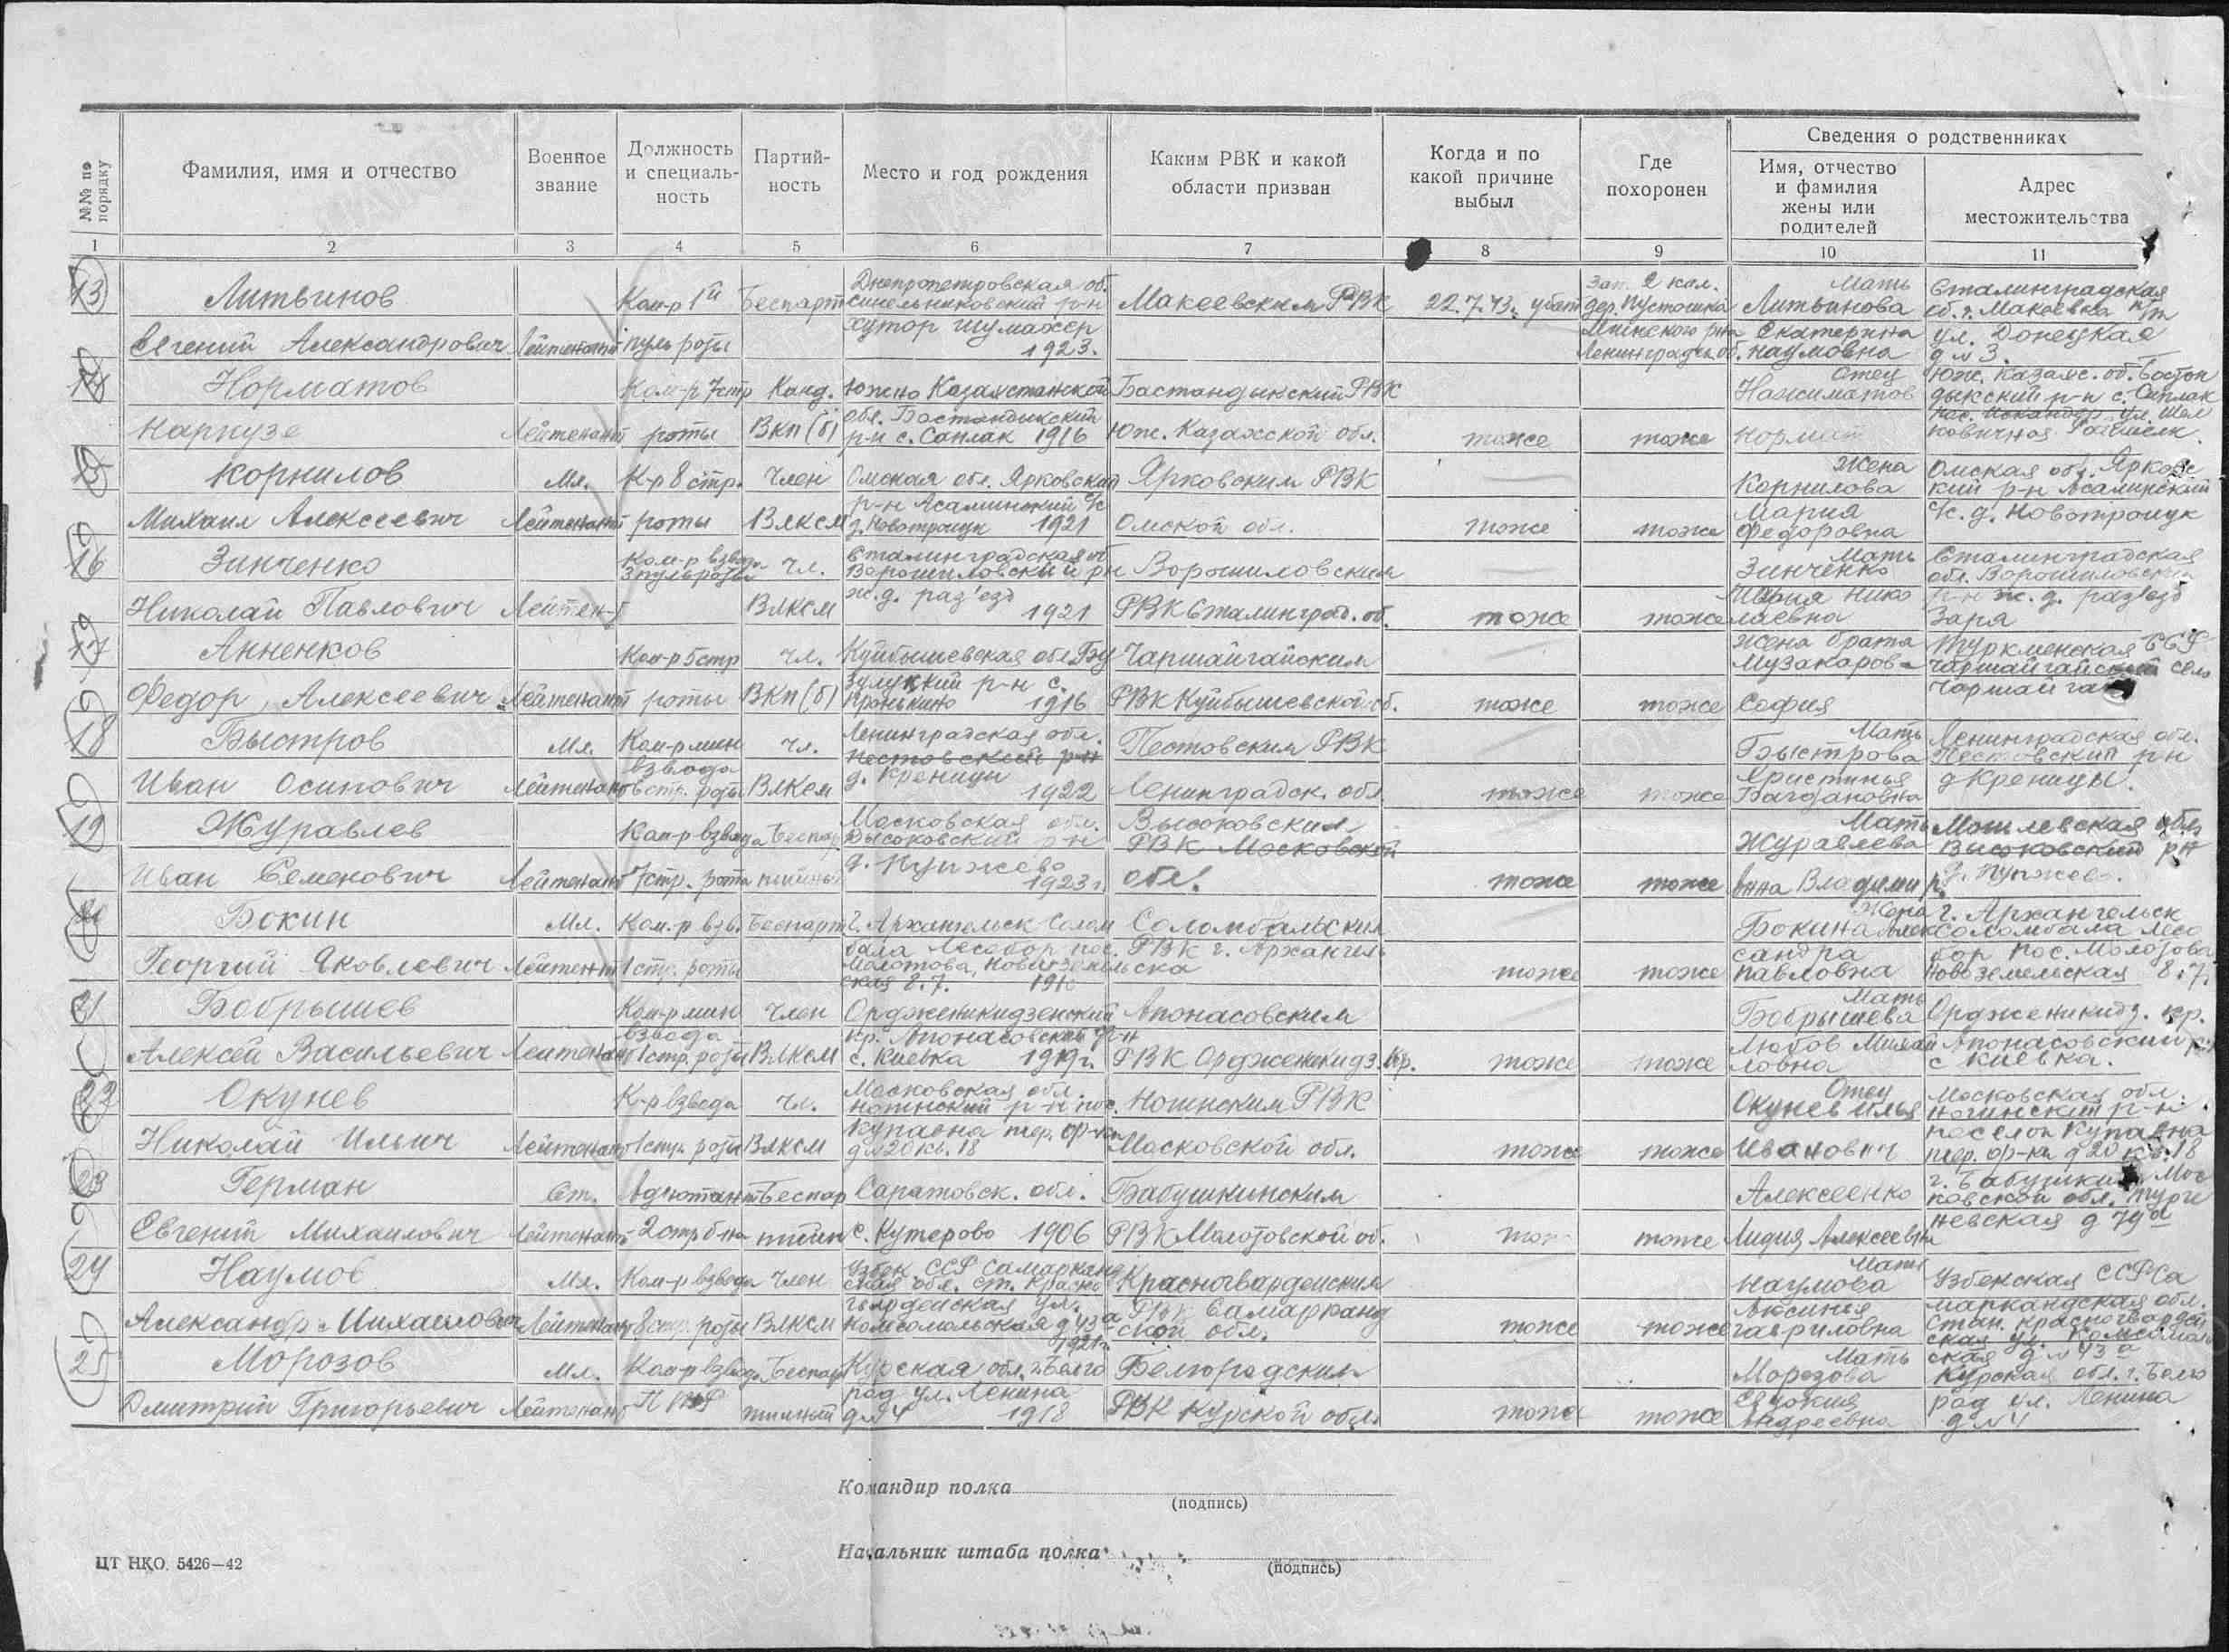 №№ по порядку
Фамилия, имя и отчество
Военное звание
Должность и специальность
Партийность
Место и год рождения
Каким РВК и какой области призван
Когда и по какой причине выбыл
Где похоронен
Сведения о родственниках
Имя, отчество и фамилия жены или родителей
Адрес местожительства
1 2 3 4 5 6 7 8 9 10 11
13 Литвинов Ком-р 1й Беспарт Днепропетровская об. Синельниковский р-н Макеевским РВК 22.7.43г. убит Зап. 2 кил. дер. Пустошка Мать Литвинова Сталинградская об. г. Макеевка
Евгений Александрович Лейтенант пуль роты хутор Шумахер 1923. Мгинского р-на Ленинградск об. Екатерина Наумовна ул. Донецкая д № 3.
14 Норматов Ком-р 7стр Канд. Южно Казахстанской Бастандыкский РВК Отец Нажиматов Юж. Казахс. об. Бостон
Наркузе Лейтенант роты ВКП(б) обл. Бостандыкский р-н с. Саплак 1916 Юж. Казахской обл. тоже тоже Нормат дыкский р-н с. Саплак
15 Корнилов Мл. К-р 8 стр. Член Омская обл. Ярковский Ярковским РВК Жена Корнилова Омская об. Ярковс
Михаил Алексеевич Лейтенант роты ВЛКСМ р-н Асалинский с/с д. Новотроицк 1921 Омской обл. тоже тоже Мария Федоровна кий р-н Асалинский с/с. д. Новотроицк
16 Зинченко Ком-р взвода 3 пульроты чл. Сталинградская об Ворошиловский р-н Ворошиловским Мать Зинченко Сталинградская обл. Ворошиловский
Николай Павлович Лейтен-т ВЛКСМ ж.д. раз'езд 1921 РВК Сталинград. об. тоже тоже Нико лаевна р-н ж.д. раз'езд Заря
17 Анненков Ком-р 5стр чл. Куйбышевская обл. Бу Чаршайгайским Жена брата Музакаров Туркменская ССР
Федор Алексеевич Лейтенант роты ВКП(б) зулуцкий р-н с. Пронькино 1916 РВК Куйбышевской об. тоже тоже София Чаршайгайский село
18 Быстров Мл. Ком-р мин чл. Ленинградская обл. Пестовский р-н Пестовским РВК Мать Быстрова Ленинградская обл. Пестовский р-н
Иван Осипович Лейтенант взвода стр. роты ВЛКСМ д. Креницы 1922 Ленинградск. обл тоже тоже Христинья Багдановна д Креницы.
19 Журавлев Ком-р взвода Беспар Московская об. Высоковский р-н Высоковским РВК Московской Мать Журавлева Высоковский р-н
Иван Семенович Лейтенант 7стр. рота тийный д. Пупжево 1923г. обл. тоже тоже Анна Владимир. д. Пупжево.
Бокин Мл. Ком-р взв. Беспарт г. Архангельск Солом Соломбальским Жена Бокина Алек г. Архангельск Соломбала Лесо
Георгий Яковлевич Лейтенант 1стр. роты бала Лесобор пос. Молотова, Новоземельская 8.7. РВК г. Архангельска тоже тоже сандра Павловна бор пос. Молотова Новоземельская 8.7.
21 Бобрышев Ком-р мин Член Орджоникидзенский Апонасовским Мать Бобрышева Орджоникидз. кр.
Алексей Васильевич Лейтенант взвода 1стр. роты ВЛКСМ кр. Апонасовский р-н с. Киевка 1919г. РВК Орджоникидз. кр. тоже тоже Любов Михайловна Апонасовский р-н с Киевка.
22 Окунев К-р взвода чл. Московская обл. Ногинский р-н пос. Ногинским РВК Отец Окунев Илья Московская обл. Ногинский р-н.
Николай Ильич Лейтенант 1стр. роты ВЛКСМ Купавна тер. ф-ки д № 20 кв. 18 Московской обл. тоже тоже Иванович поселок Купавна тер. ф-ки д 20 кв. 18
23 Герман Ст. Адютант Беспар Саратовск. обл. Бабушкинским Алексеенко г. Бабушкин Мос ковской обл. Турге
Евгений Михаилович Лейтенант 2стр б-на тийн с. Кутерово 1906 РВК Молотовской об. тоже тоже Лидия Алексеевна невская д 79а
24 Наумов Мл. Ком-р взвода Член Узбек ССР Самарканд ская обл. ст. Красно Красногвардейским Мать Наумова Узбекская ССР Са
Александр Михаилович Лейтенант 8стр. роты ВЛКСМ гвардейская ул. Комсомольская 1921г. РВК Самарканд ской обл. тоже тоже Гавриловна маркандская обл. Стан. Красногвардей ская ул. Комсомоль ская д № 43а
25 Морозов Мл. Ком-р взвода Беспар Курская обл. г. Белго Белгородским Мать Морозова Курская обл. г. Белго
Дмитрий Григорьевич Лейтенант ПТР тийный род ул. Ленина д № 4 1918 РВК Курской обл. тоже тоже Евдокия Андреевна род ул. Ленина д № 4
Командир полка
(подпись)
Начальник штаба полка
(подпись)
ЦТ НКО. 5426—42